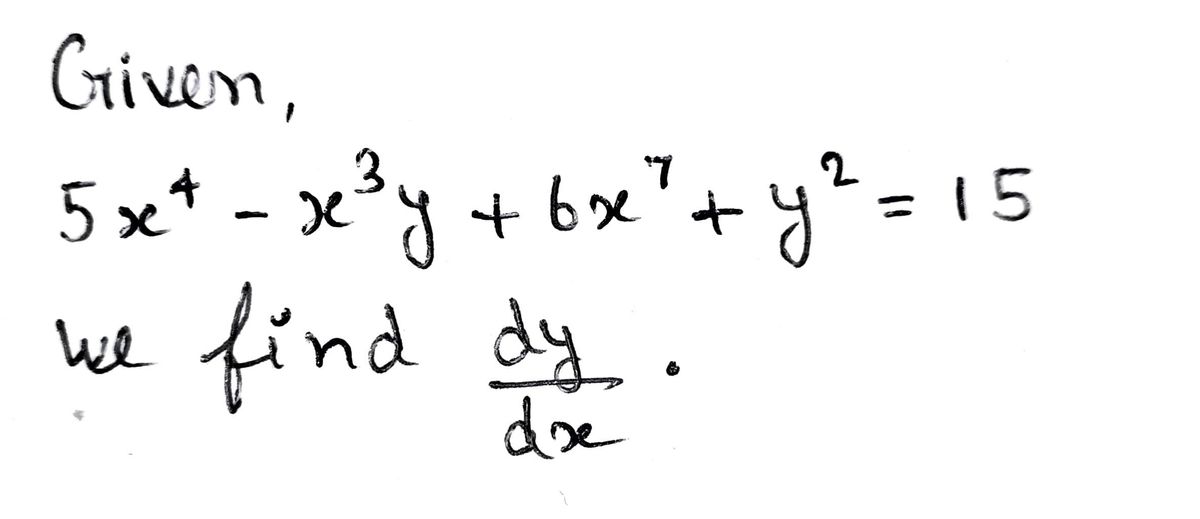 Given,
5x⁴ - x³y + 6x⁷ + y² = 15
we find dy/dx.